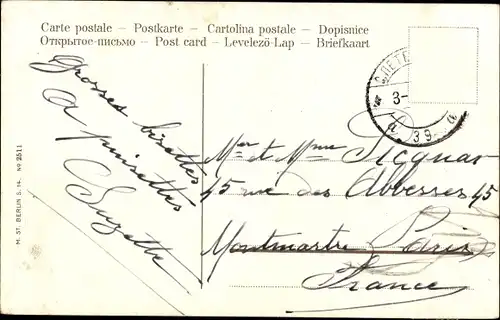 Carte postale – Postkarte – Cartolina postale – Dopisnice
Открытое-письмо – Post card – Levelező-Lap – Briefkaart
Grosses bisettes
Suzette
Mr et Mme Sicgnar
45 rue des Abbesses 45
Montmartre Paris
France
3-
39
a
M. ST. BERLIN S. 14. No 2511